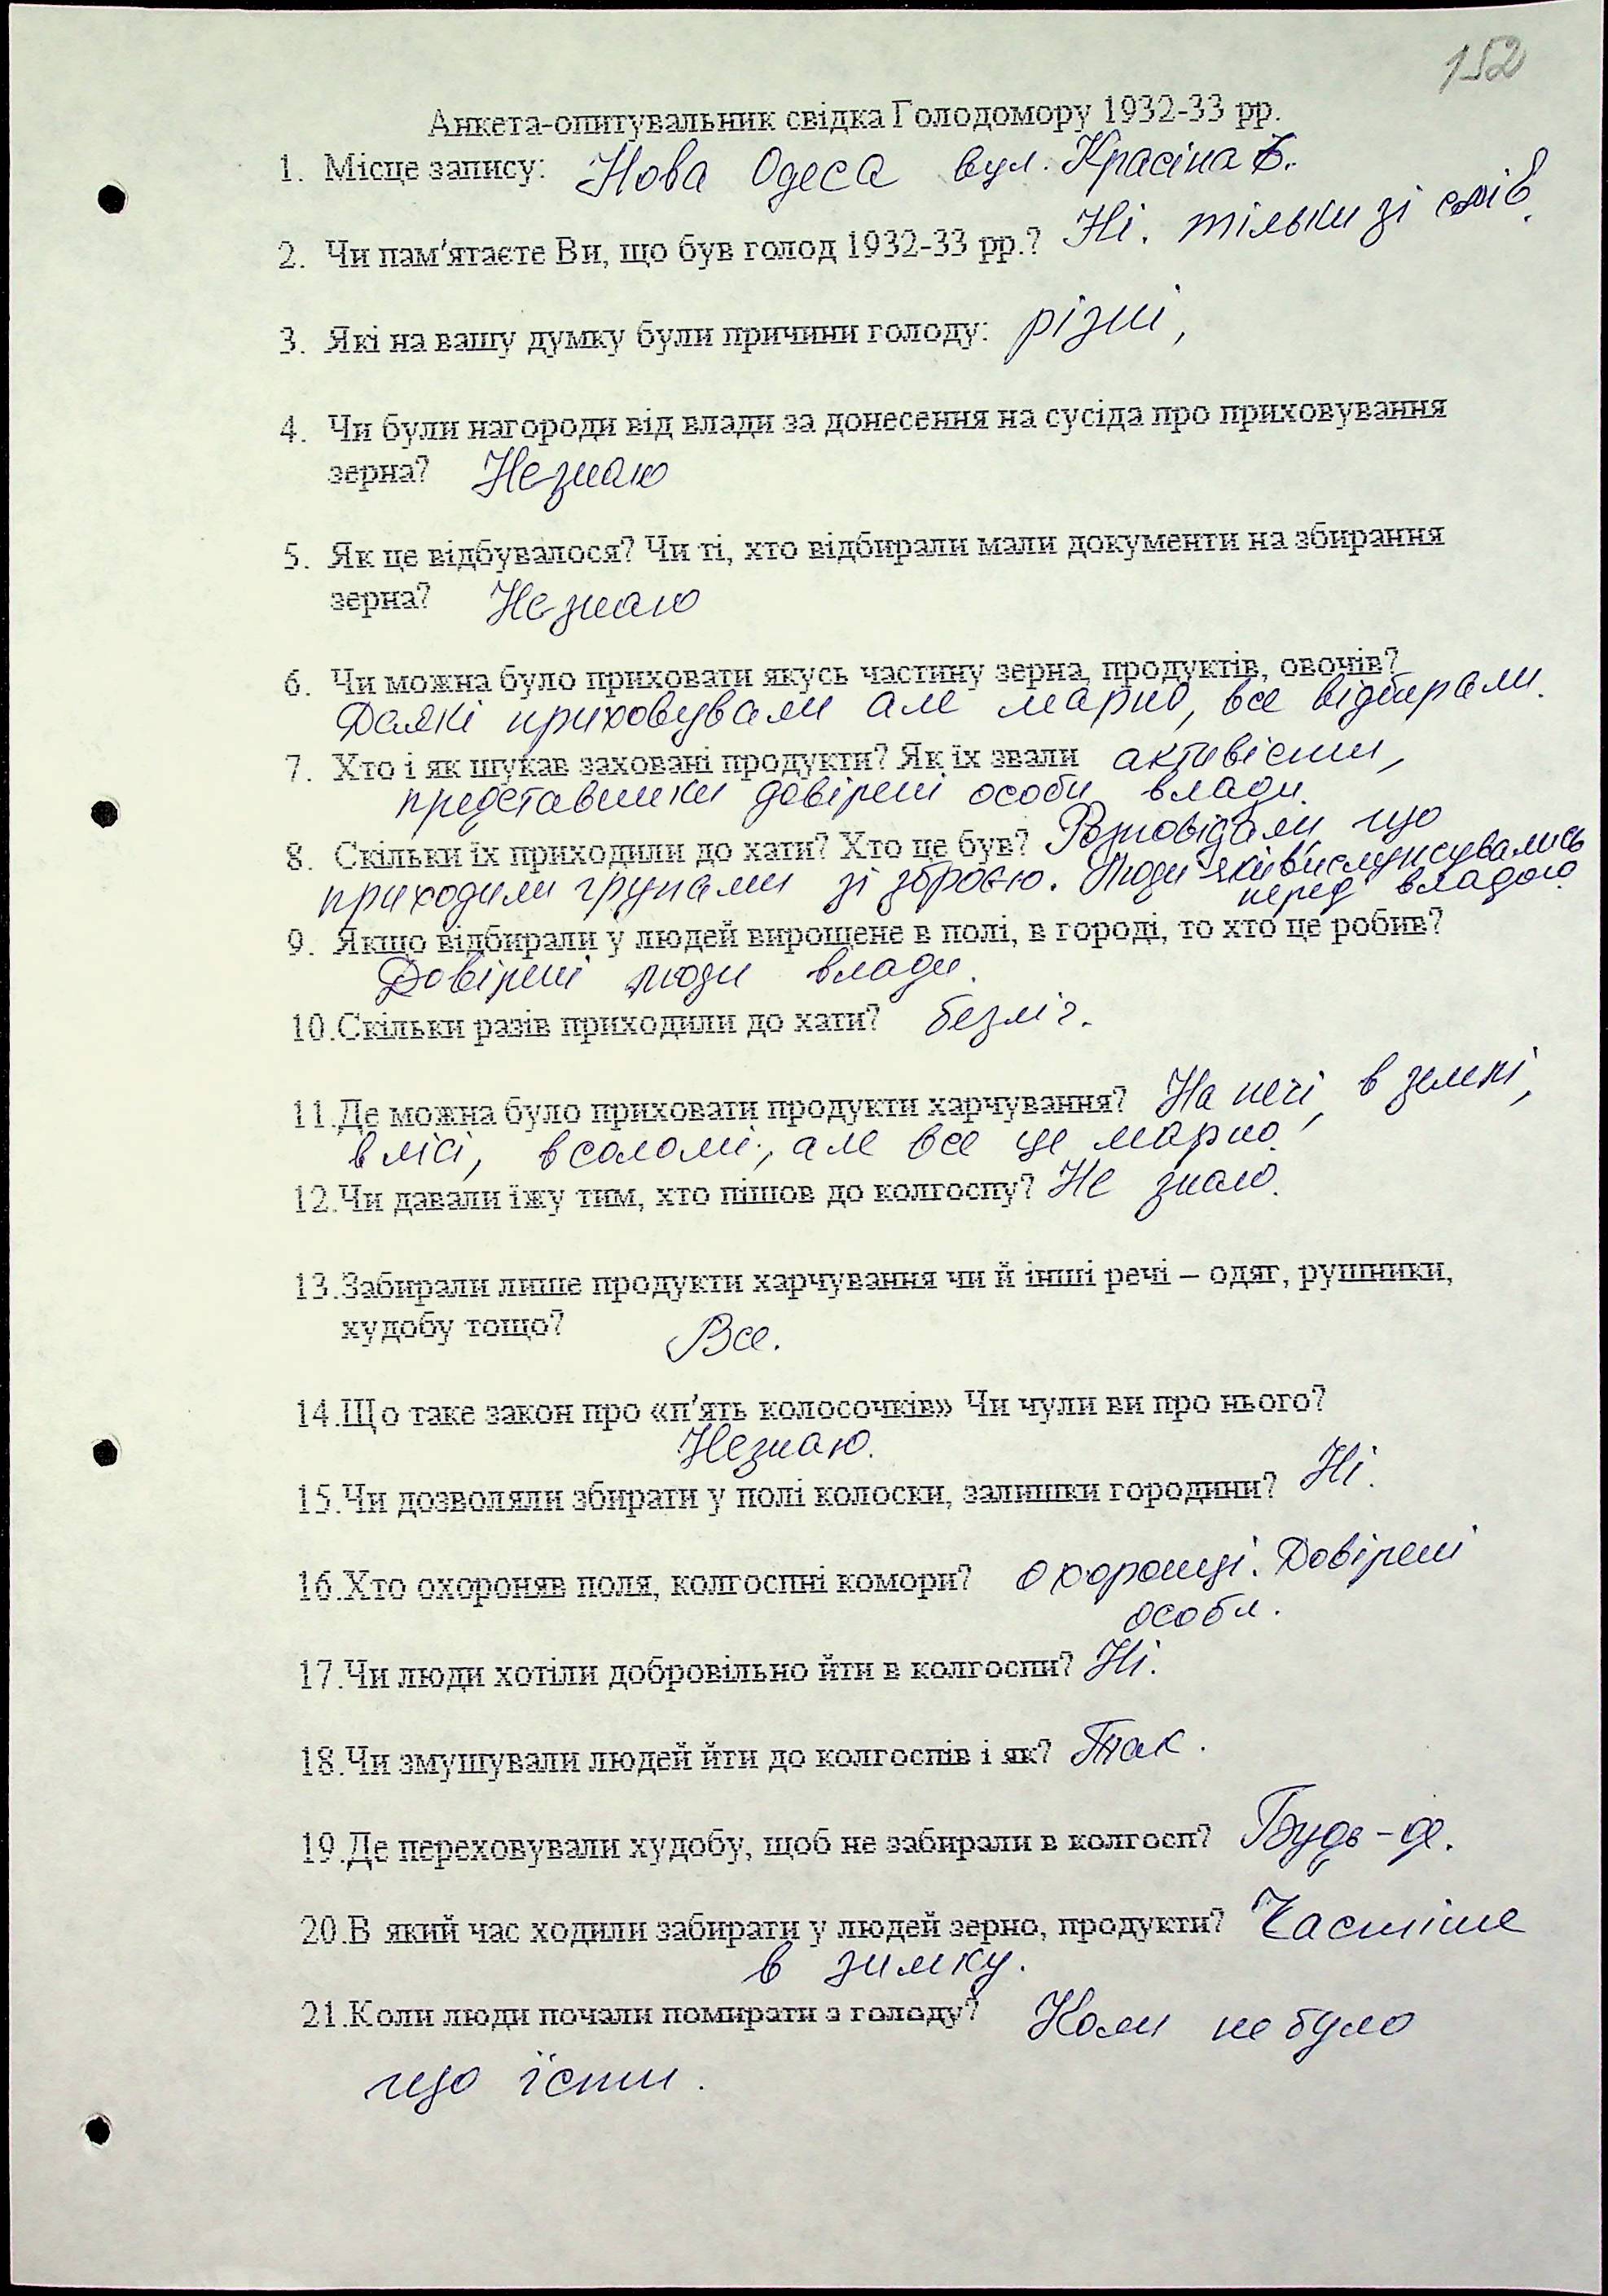 152
Анкета-опитувальник свідка Голодомору 1932-33 рр.
1. Місце запису: Нова Одеса вул. Красіна
2. Чи пам'ятаєте Ви, що був голод 1932-33 рр.? Ні. тільки зі слів.
3. Які на вашу думку були причини голоду: різні,
4. Чи були нагороди від влади за донесення на сусіда про приховування
зерна? Незнаю
5. Як це відбувалося? Чи ті, хто відбирали мали документи на збирання
зерна? Незнаю
6. Чи можна було приховати якусь частину зерна, продуктів, овочів?
Деякі приховували але марно, все відбирали.
7. Хто і як шукав заховані продукти? Як їх звали активісти,
представники довірені особи влади.
8. Скільки їх приходили до хати? Хто це був? Розповідали, що
приходили групами зі зброєю. Люди які вислужувались
перед владою.
9. Якщо відбирали у людей вирощене в полі, в городі, то хто це робив?
Довірені люди влади.
10.Скільки разів приходили до хати? безліч.
11.Де можна було приховати продукти харчування? На печі, в землі,
в лісі, в соломі, але все це марно.
12.Чи давали їжу тим, хто пішов до колгоспу? Не знаю.
13.Забирали лише продукти харчування чи й інші речі – одяг, рушники,
худобу тощо? Все.
14.Що таке закон про «п'ять колосочків» Чи чули ви про нього?
Незнаю.
15.Чи дозволяли збирати у полі колоски, залишки городини? Ні.
16.Хто охороняв поля, колгоспні комори? охоронці. Довірені
особи.
17.Чи люди хотіли добровільно йти в колгоспи? Ні.
18.Чи змушували людей йти до колгоспів і як? Так.
19.Де переховували худобу, щоб не забирали в колгосп? Будь-де.
20.В який час ходили забирати у людей зерно, продукти? Частіше
в зимку.
21.Коли люди почали помирати з голоду? Коли не було
що їсти.